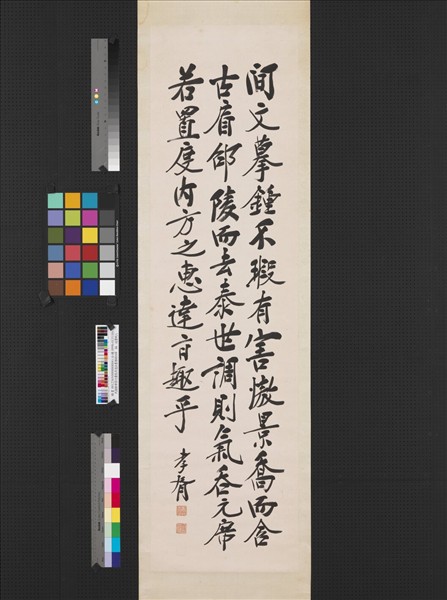 間文摹鍾不瑕有害傲景喬而含
古眉陵而去泰世調則氣吞元席
若置度内方之惠達趣乎
孝胥